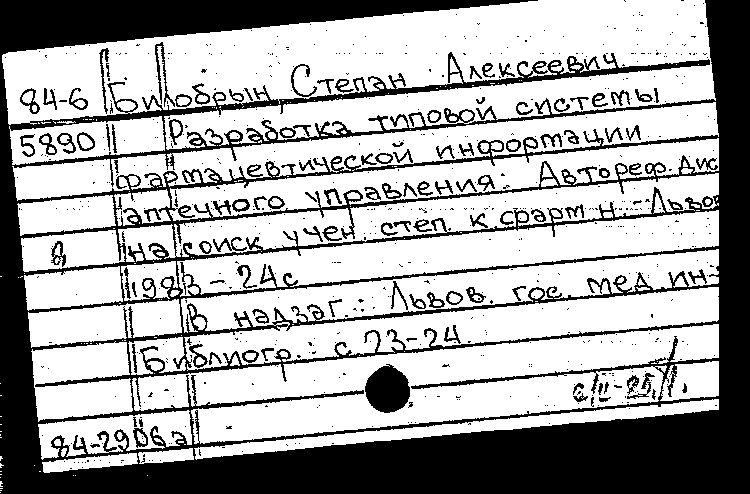 84-6 Билобрын, Степан Алексеевич
5890 Разработка типовой системы
фармацевтической информации
аптечного управления: Автореф. дис
на соиск. учен. степ. к.фарм.н. - Львов
1983 - 24 с
В надзаг.: Львов. гос. мед. ин-
Библиогр.: с. 23-24
84-2906а